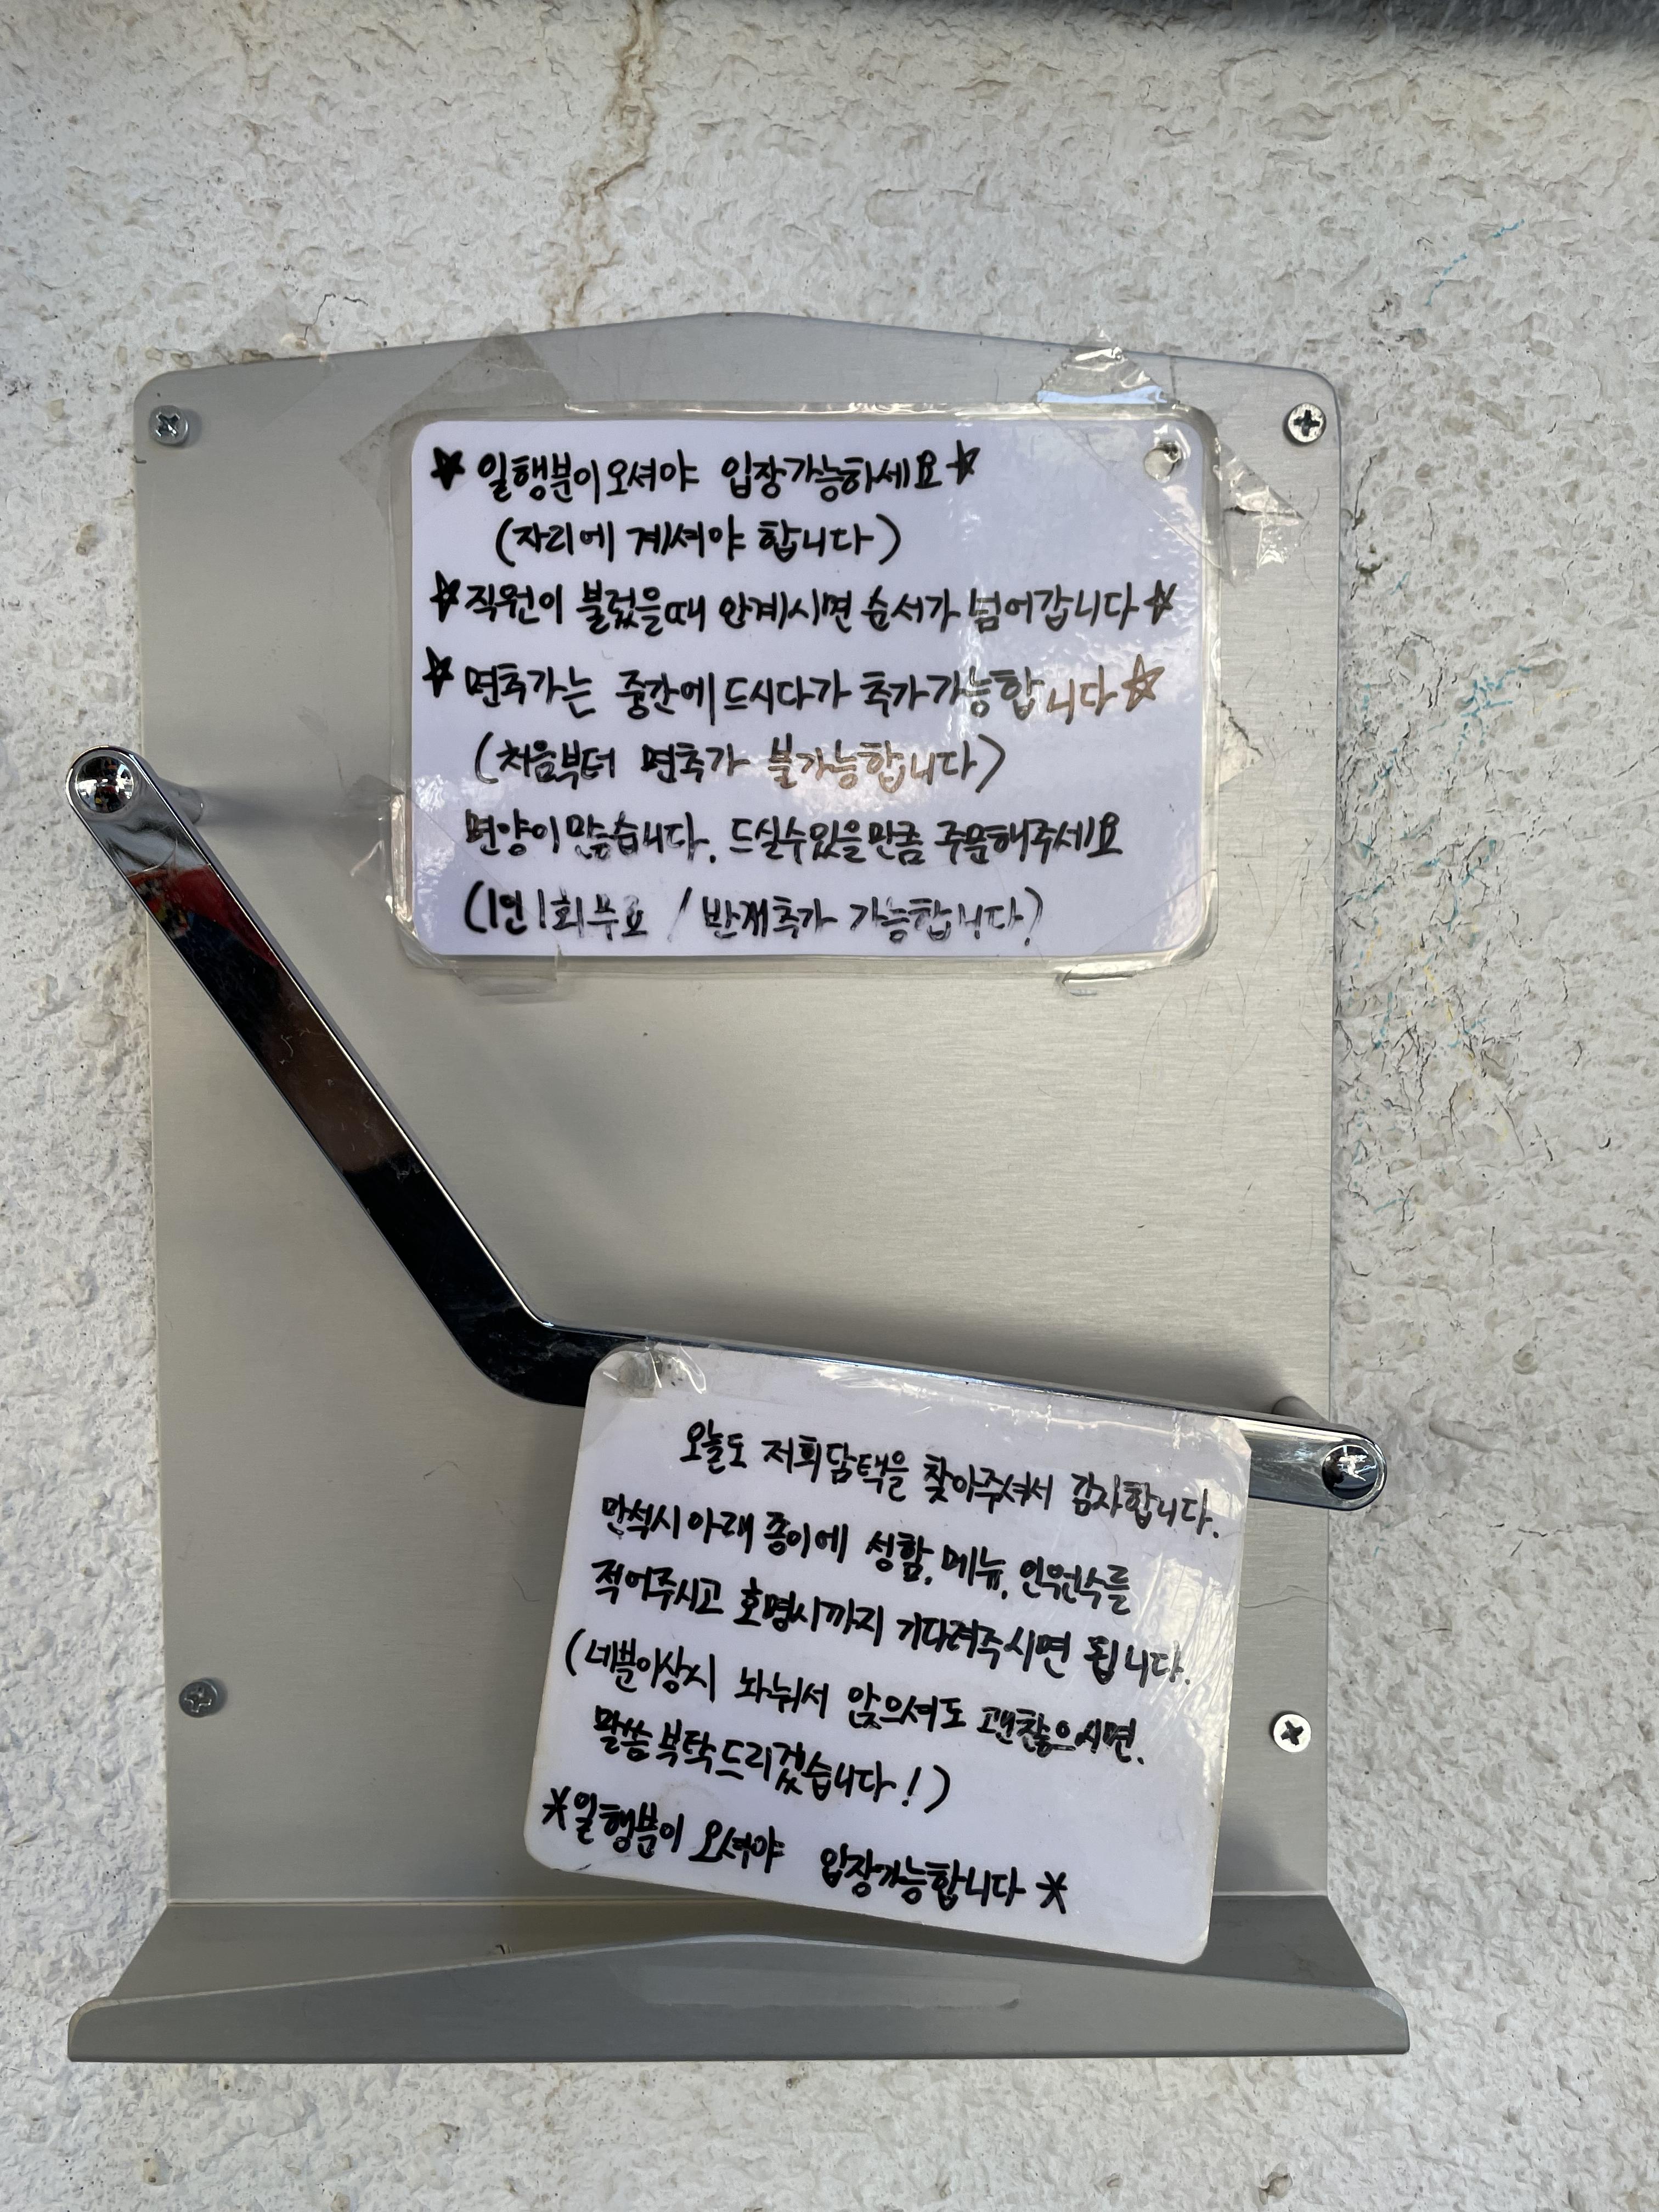 ☆일행분이오셔야 입장가능하세요☆
(자리에 계셔야 합니다)
☆직원이 불렀을때 안계시면 순서가 넘어갑니다☆
☆면추가는 중간에드시다가 추가가능합니다☆
(처음부터 면추가 불가능합니다)
면양이많습니다. 드실수있을만큼 주문해주세요
(1인1회무료 / 반개추가 가능합니다)
오늘도 저희담택을 찾아주셔서 감사합니다.
만석시아래종이에 성함, 메뉴, 인원수를
적어주시고 호명시까지 기다려주시면 됩니다.
(네분이상시 나눠서 앉으셔도 괜찮으시면,
말씀부탁드리겠습니다!)
*일행분이 오셔야 입장가능합니다*